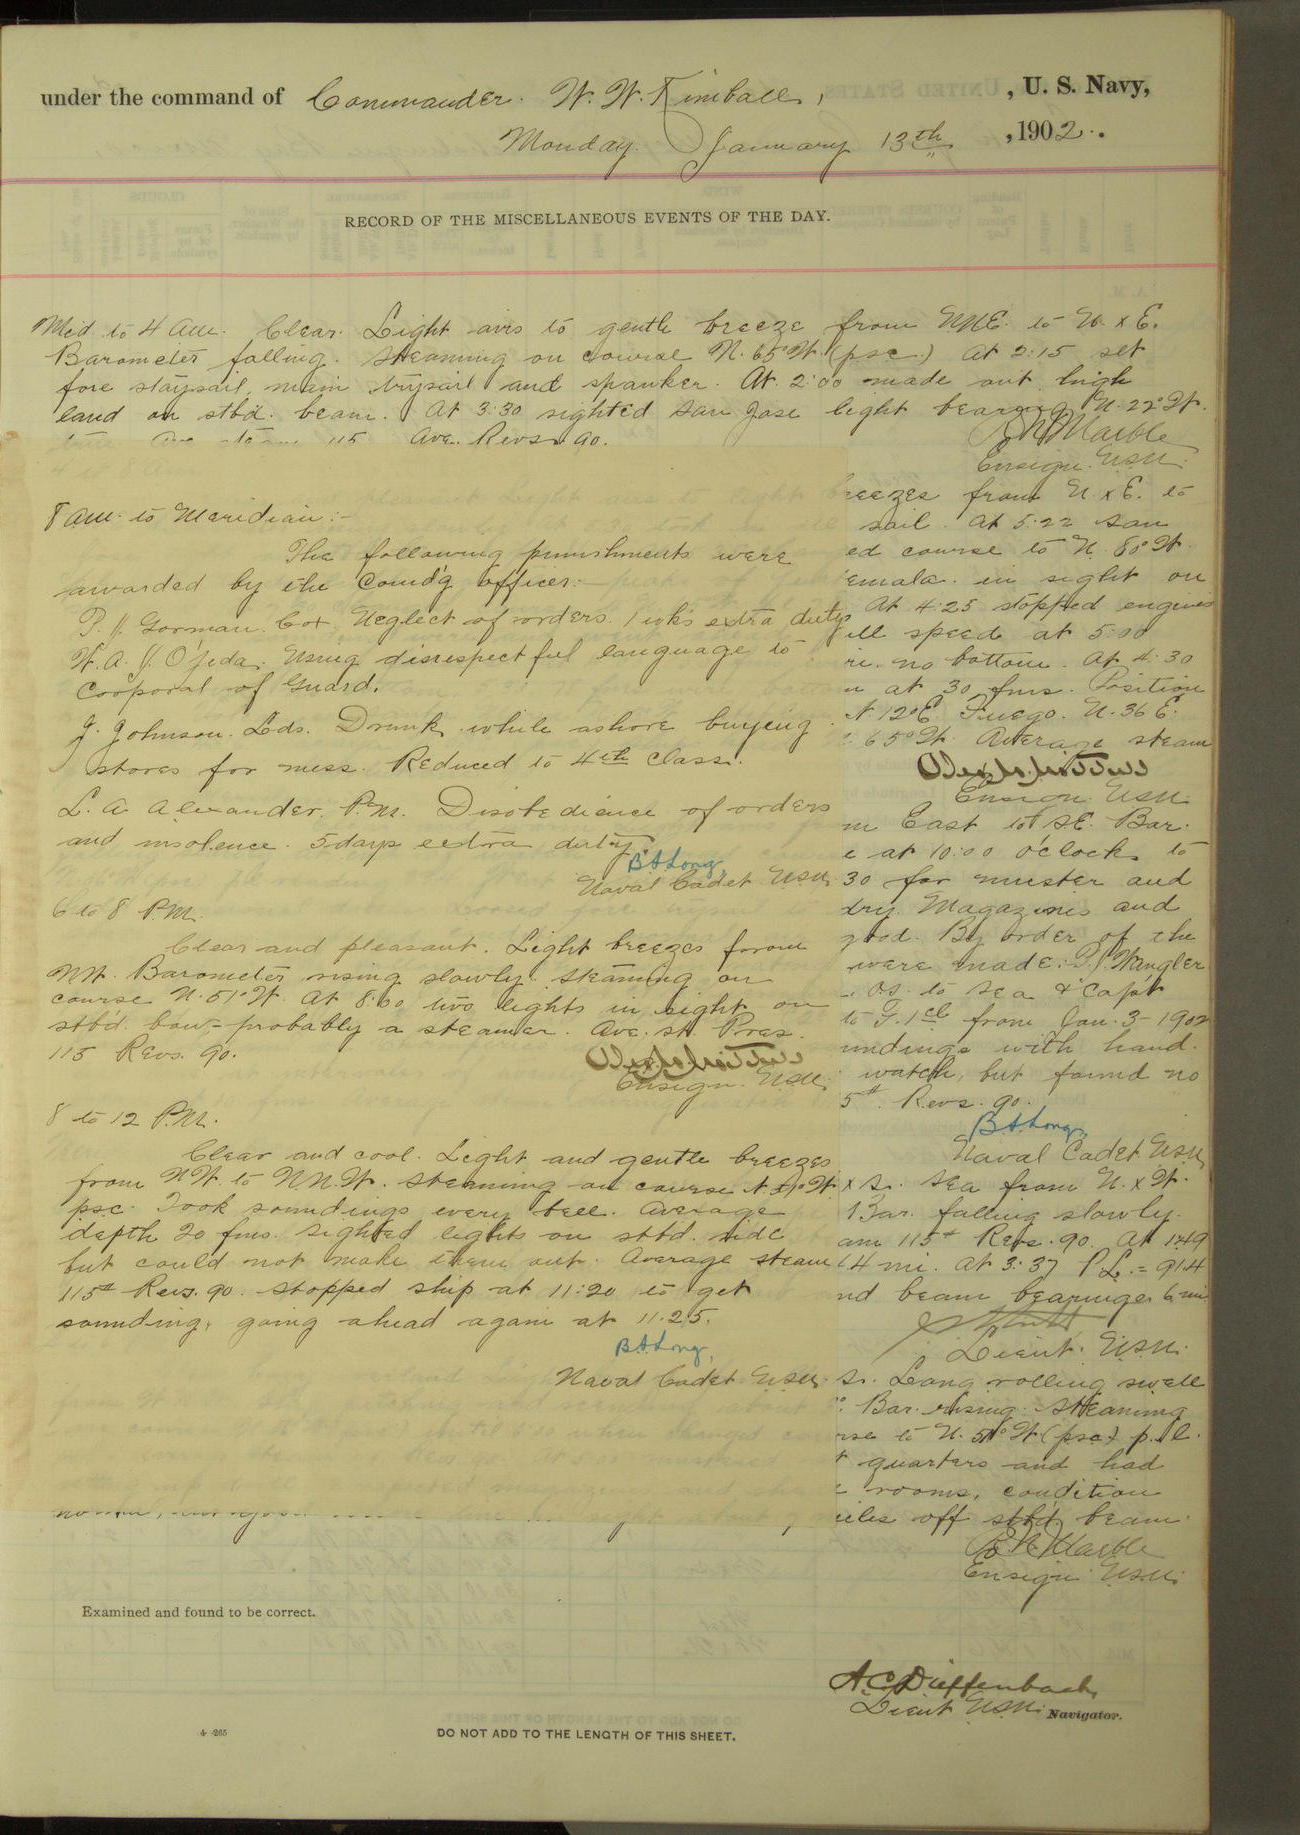 under the command of Commander. W. W. Kimball, , U. S. Navy,
Monday. January 13th , 1902.
RECORD OF THE MISCELLANEOUS EVENTS OF THE DAY.
Mid. to 4 am. Clear. Light airs to gentle breeze from NNE. to N. x E.
Barometer falling. Steaming on course N. 65° W. (psc.) At 2:15 set
fore staysail, main trysail and spanker. At 2:00 made out high
land on stb'd. beam. At 3:30 sighted San Jose light bearing N. 22° W.
115 Ave. Revs. 90.
Marble
Ensign. USN.
8 am. to Meridian:-
The following punishments were
awarded by the Comd'g officer:-
P. J. Gorman. Cox. Neglect of orders. 1 wk's extra duty
W. A. J. Ojeda. Using disrespectful language to
Corporal of Guard.
J. Johnson. Lds. Drunk while ashore buying
stores for mess. Reduced to 4th Class.
L. A. Alexander. P.M. Disobedience of orders
and insolence. 5 days extra duty.
B A Long,
Naval Cadet USN.
6 to 8 P.M.
Clear and pleasant. Light breezes from
NW. Barometer rising slowly. Steaming on
course N. 51° W. At 8:00 two lights in sight on
stb'd. bow,- probably a steamer. Ave. st. Pres.
115 Revs. 90.
Ensign. USN.
8 to 12 P.M.
Clear and cool. Light and gentle breezes
from NW. to NNW. Steaming on course N 51° W
psc. Took soundings every bell. Average
depth 20 fms. Sighted lights on stbd. side
but could not make them out. Average steam
115# Revs. 90. Stopped ship at 11:20 to get
sounding, going ahead again at 11.25.
B A Long,
Naval Cadet USN.
eezes from N. x E. to
sail. At 5:22 San
ed course to N. 80° W.
emala. in sight on
At 4:25 stopped engines
ll speed at 5:00
no bottom. At 4:30
at 30 fms. Position
N. 12° E. Fuego. N. 36 E.
65° W. Average steam
Ensign USN.
m East to SE. Bar.
at 10:00 o'clock to
30 for muster and
dry. Magazines and
good. By order of the
were made: P. J. Wangler
O.S. to Sea & Cap't
to G. 1cl from Jan. 3- 1902
undings with hand.
watch, but found no
5#. Revs. 90.
B A Long,
Naval Cadet USN,
x S. Sea from N. x W.
Bar. falling slowly.
am 115# Revs. 90. At 1:49
4 mi. At 3:37 P.L. = 91.4
nd beam bearings 6 mi
Lieut. USN.
S. Long rolling swell
Bar. rising. Steaming
rse to N. 51° W (psc) p.l.
quarters and had
rooms, condition
iles off stb'd. beam.
Marble
Ensign USN.
Examined and found to be correct.
A. C. Dieffenbach,
Lieut USN. Navigator.
4—265
DO NOT ADD TO THE LENGTH OF THIS SHEET.